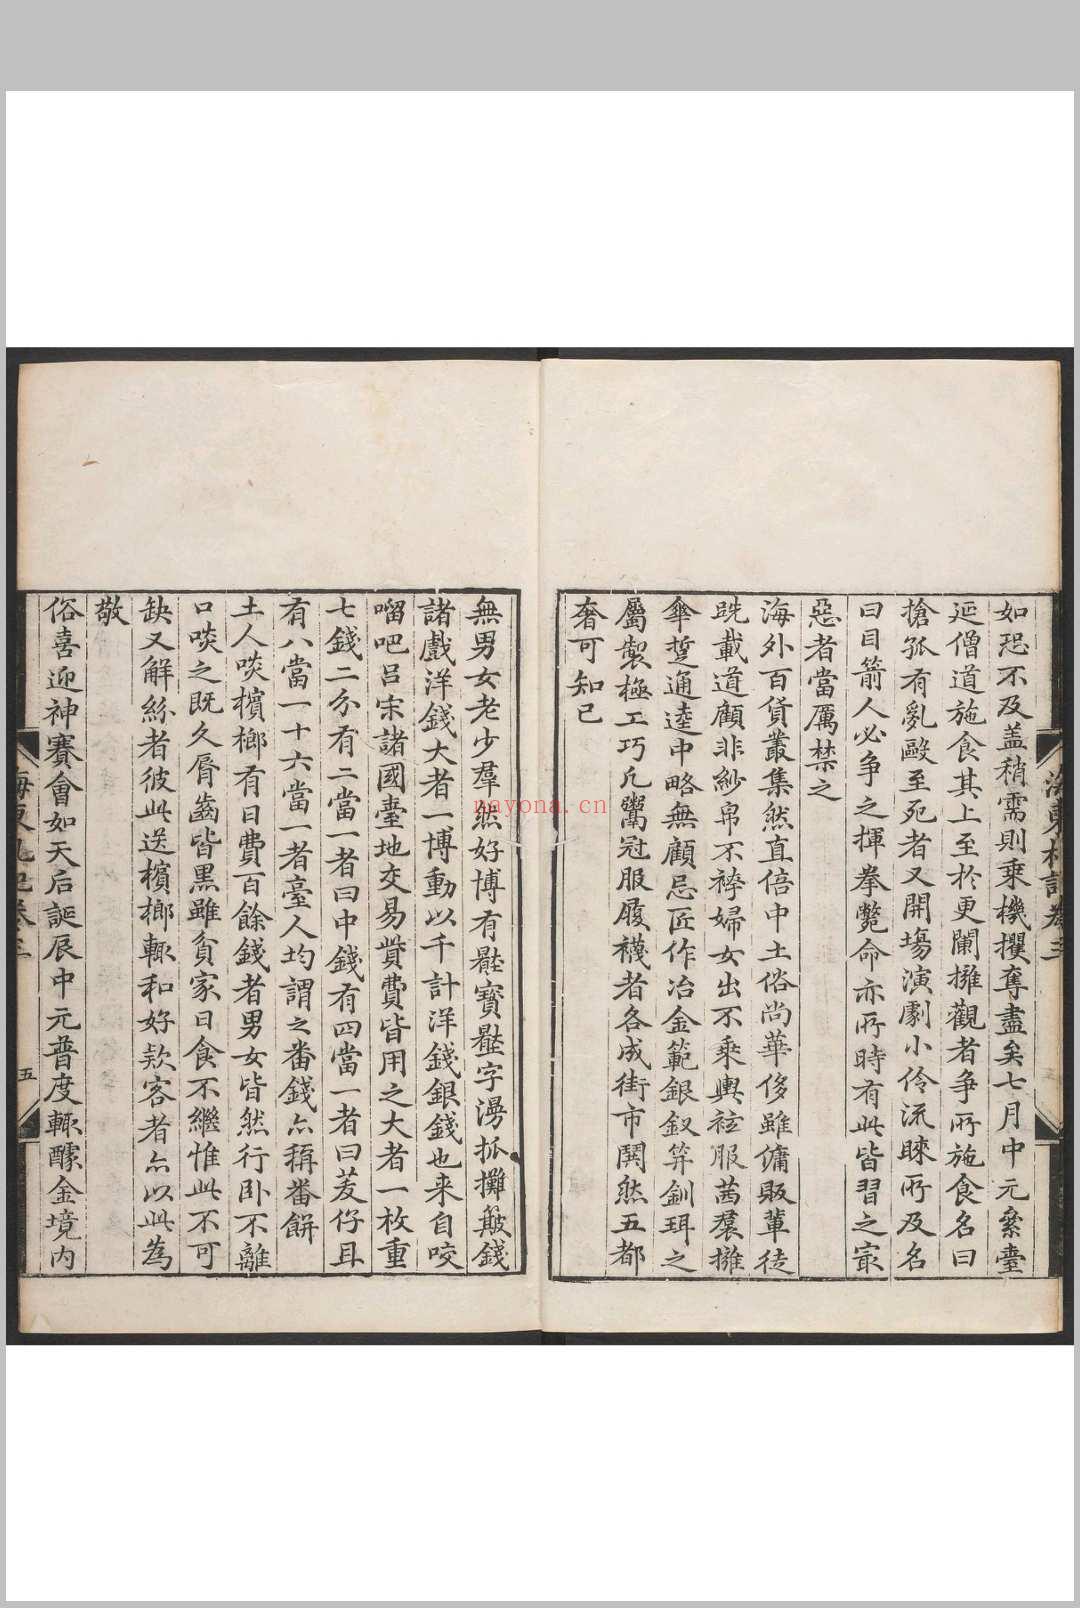 如恐不及盖稍需則乗機攫奪盡矣七月中元㕘臺
延僧道施食其上至扵更闌擁觀者争所施食名曰
搶孤有亂毆至死者又開塲演劇小伶流睞所及名
曰目箭人必争之揮拳斃命亦所時有此皆習之㝡
惡者當厲禁之
海外百貨叢集然直倍中土俗尚華侈雖傭販輩徒
跣載道顧非紗帛不袴婦女出不乗輿袨服茜裠擁
傘踅通逵中略無顧忌匠作冶金範銀釵笄釧珥之
屬製極工巧凡鬻冠服履襪者各成街市鬨然五都
奢可知已
無男女老少羣然好博有壓寶壓字漫抓攤簸錢
諸戲洋錢大者一博動以千計洋錢銀錢也来自咬
𠺕吧吕宋諸國臺地交易貲費皆用之大者一枚重
七錢二分有二當一者曰中錢有四當一者曰茇仔且
有八當一十六當一者臺人均謂之番錢亦稱番餅
土人啖檳榔有日費百餘錢者男女皆然行卧不離
口啖之既久脣齒皆黒雖貧家日食不繼惟此不可
缺又解紛者彼此送檳榔輒和好欵客者亦以此為
敬
俗喜迎神賽會如天后誕辰中元普度輒醵金境内
五
nayona.cn